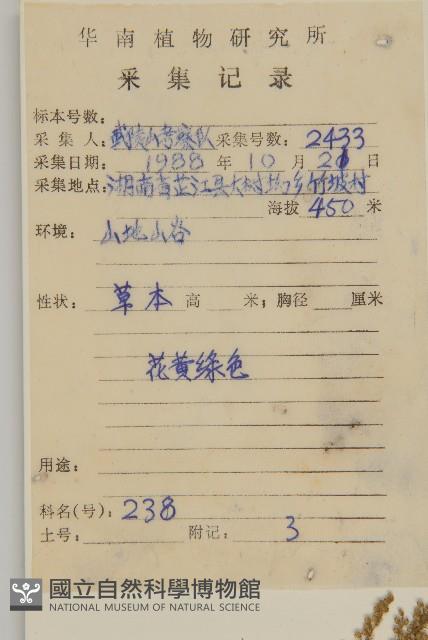 华南植物研究所
采集记录
标本号数：
采集人：武陵山考察队 采集号数：2433
采集日期：1988年10月21日
采集地点：湖南省芷江县大树坳乡竹坡村
海拔 450 米
环境：山地山谷
性状：草本 高 米；胸径 厘米
花黄绿色
用途：
科名(号)：238
土号： 附记：3
國立自然科學博物館
NATIONAL MUSEUM OF NATURAL SCIENCE